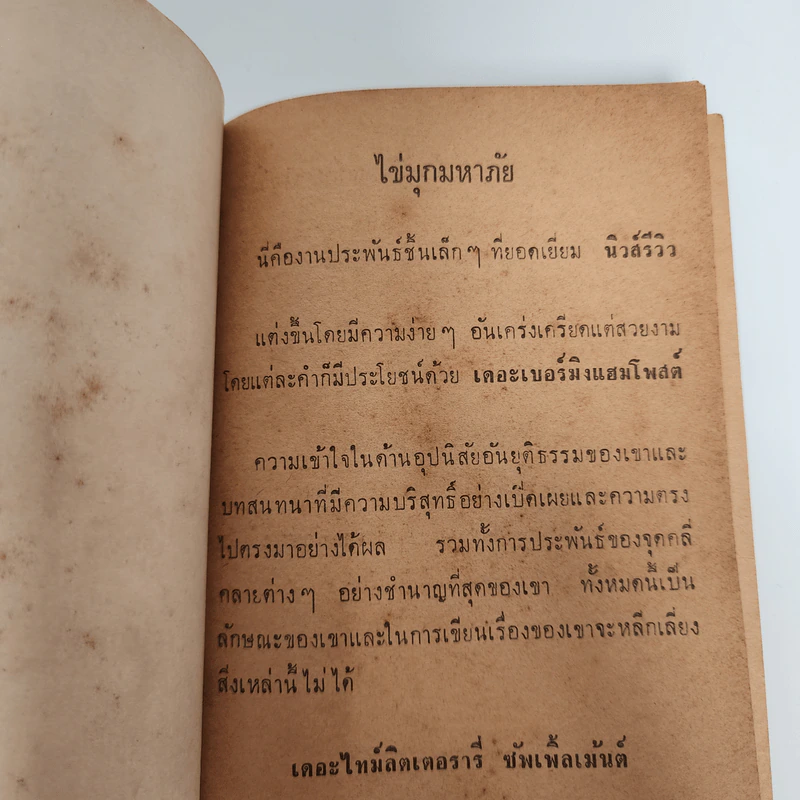 ไข่มุกมหาภัย
นี่คืองานประพันธ์ชิ้นเล็ก ๆ ที่ยอดเยี่ยม นิวส์รีวิว
แต่งขึ้นโดยมีความง่าย ๆ อันเคร่งเครียดแต่สวยงาม
โดยแต่ละคำก็มีประโยชน์ด้วย เดอะเบอร์มิงแฮมโพสต์
ความเข้าใจในด้านอุปนิสัยอันยุติธรรมของเขาและ
บทสนทนาที่มีความบริสุทธิ์อย่างเปิดเผยและความตรง
ไปตรงมาอย่างได้ผล รวมทั้งการประพันธ์ของจุดคลี่
คลายต่าง ๆ อย่างชำนาญที่สุดของเขา ทั้งหมดนี้เป็น
ลักษณะของเขาและในการเขียนเรื่องของเขาจะหลีกเลี่ยง
สิ่งเหล่านี้ ไม่ ได้
เดอะไทม์ลิตเตอรารี่ ซัพเพิ้ลเม้นต์